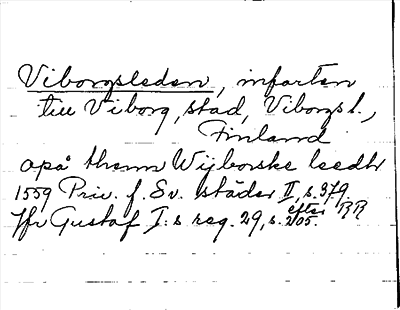 Viborgsleden, infarten
till Viborg, stad, Viborgs l.,
Finland
opå themn Wijborske leedh
1559 Priv. f. Sv. städer II, s. 379
Jfr Gustaf I:s reg. 29, s. 205. efter RR